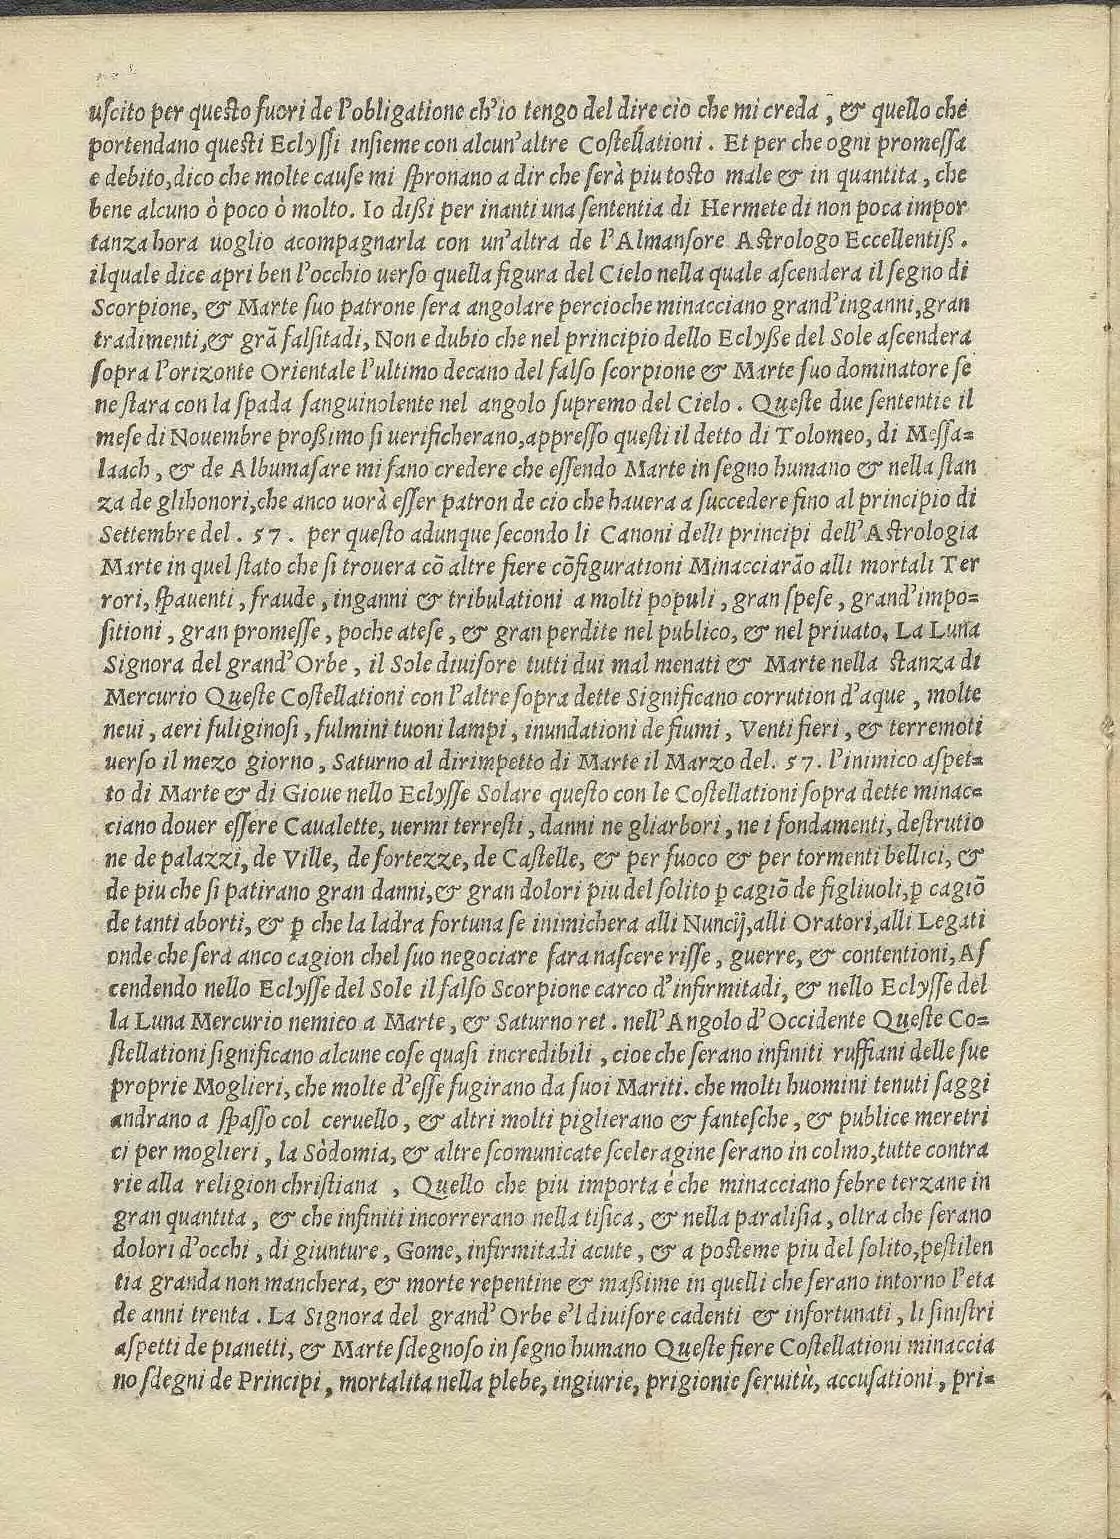 uſcito per queſto fuori de l'obligatione ch'io tengo del dire cio che mi creda, & quello che
portendano queſti Eclyſſi inſieme con alcun'altre Coſtellationi. Et per che ogni promeſſa
e debito, dico che molte cauſe mi ſpronano a dir che ſerà piu toſto male & in quantita, che
bene alcuno ò poco ò molto. Io dißi per inanti una ſententia di Hermete di non poca impor
tanza hora uoglio acompagnarla con un'altra de l'Almanſore Aſtrologo Eccellentiß.
ilquale dice apri ben l'occhio uerſo quella figura del Cielo nella quale aſcendera il ſegno di
Scorpione, & Marte ſuo patrone ſera angolare percioche minacciano grand'inganni, gran
tradimenti, & grã falſitadi, Non e dubio che nel principio dello Eclyße del Sole aſcendera
ſopra l'orizonte Orientale l'ultimo decano del falſo ſcorpione & Marte ſuo dominatore ſe
ne ſtara con la ſpada ſanguinolente nel angolo ſupremo del Cielo. Queſte due ſententie il
meſe di Nouembre proßimo ſi uerificherano, appreſſo queſti il detto di Tolomeo, di Meſſa=
laach, & de Albumaſare mi fano credere che eſſendo Marte in ſegno humano & nella ſtan
za de glihonori, che anco uorà eſſer patron de cio che hauera a ſuccedere fino al principio di
Settembre del. 57. per queſto adunque ſecondo li Canoni delli principi dell'Aſtrologia
Marte in quel ſtato che ſi trouera cõ altre fiere cõfigurationi Minacciarão alli mortali Ter
rori, ſpauenti, fraude, inganni & tribulationi a molti populi, gran ſpeſe, grand'impo=
ſitioni, gran promeſſe, poche ateſe, & gran perdite nel publico, & nel priuato. La Luna
Signora del grand'Orbe, il Sole diuiſore tutti dui mal menati & Marte nella ſtanza di
Mercurio Queſte Coſtellationi con l'altre ſopra dette Significano corrution d'aque, molte
neui, aeri fuliginoſi, fulmini tuoni lampi, inundationi de fiumi, Venti fieri, & terremoti
uerſo il mezo giorno, Saturno al dirimpetto di Marte il Marzo del. 57. l'inimico aſpet=
to di Marte & di Gioue nello Eclyſſe Solare queſto con le Coſtellationi ſopra dette minac=
ciano douer eſſere Caualette, uermi terreſti, danni ne gliarbori, ne i fondamenti, deſtrutio
ne de palazzi, de Ville, de fortezze, de Caſtelle, & per fuoco & per tormenti bellici, &
de piu che ſi patirano gran danni, & gran dolori piu del ſolito ꝑ cagiõ de figliuoli, ꝑ cagiõ
de tanti aborti, & ꝑ che la ladra fortuna ſe inimichera alli Nuncij, alli Oratori, alli Legati
onde che ſera anco cagion chel ſuo negociare fara naſcere riſſe, guerre, & contentioni, Aſ
cendendo nello Eclyſſe del Sole il falſo Scorpione carco d'infirmitadi, & nello Eclyſſe del
la Luna Mercurio nemico a Marte, & Saturno ret. nell'Angolo d'Occidente Queſte Co=
ſtellationi ſignificano alcune coſe quaſi incredibili, cioe che ſerano infiniti ruffiani delle ſue
proprie Moglieri, che molte d'eſſe fugirano da ſuoi Mariti. che molti huomini tenuti ſaggi
andrano a ſpaſſo col ceruello, & altri molti piglierano & fanteſche, & publice meretri
ci per moglieri, la Sòdomia, & altre ſcomunicate ſceleragine ſerano in colmo, tutte contra
rie alla religion chriſtiana, Quello che piu importa é che minacciano febre terzane in
gran quantita, & che infiniti incorrerano nella tiſica, & nella paraliſia, oltra che ſerano
dolori d'occhi, di giunture, Gome, infirmitadi acute, & a poſteme piu del ſolito, peſtilen
tia granda non manchera, & morte repentine & maßime in quelli che ſerano intorno l'eta
de anni trenta. La Signora del grand'Orbe e'l diuiſore cadenti & infortunati, li ſiniſtri
aſpetti de pianetti, & Marte ſdegnoſo in ſegno humano Queſte fiere Coſtellationi minaccia
no ſdegni de Principi, mortalita nella plebe, ingiurie, prigionie ſeruitù, accuſationi, pri=